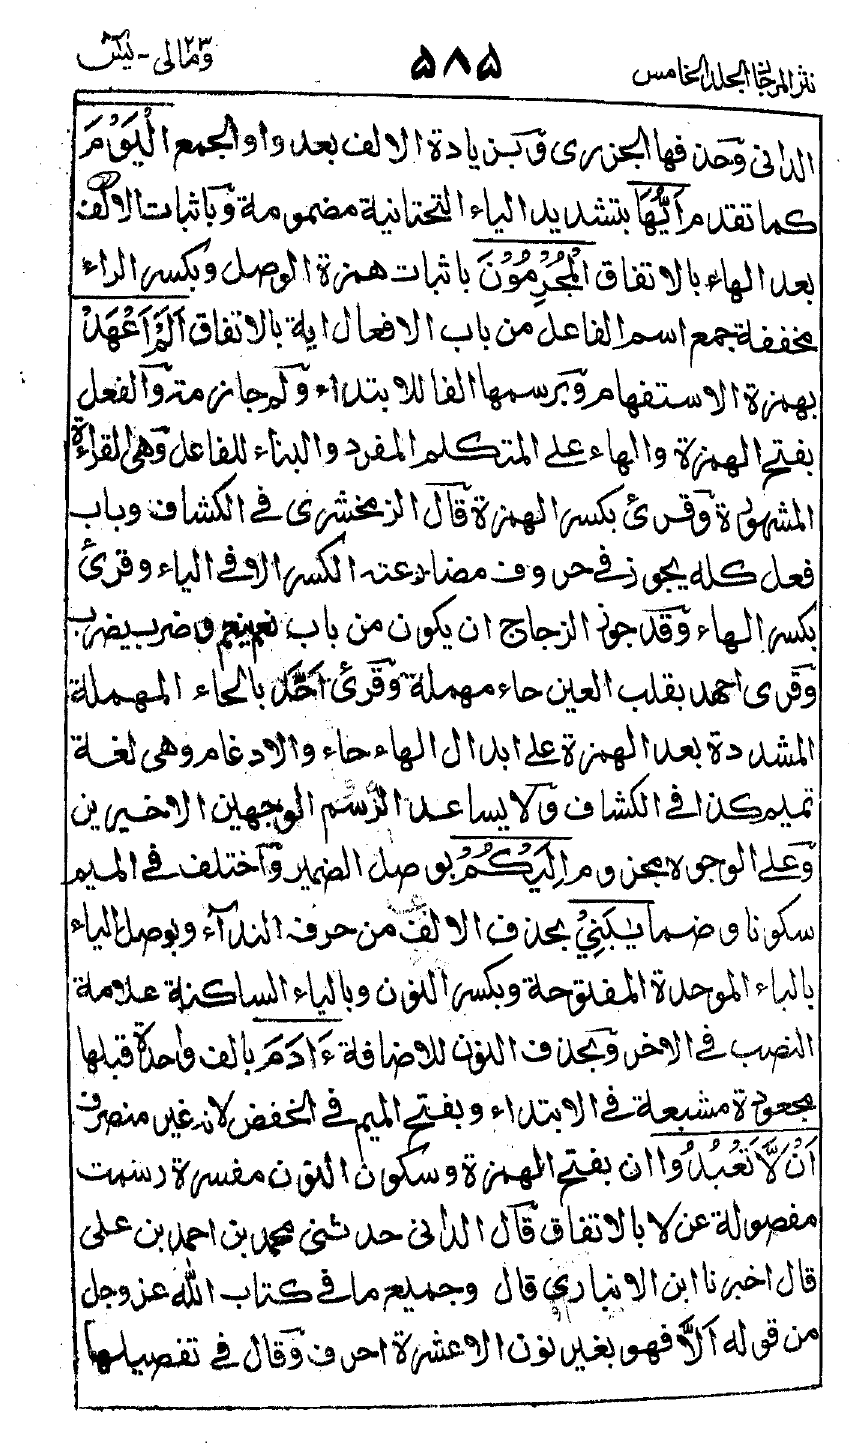 نثر المرجان المجلد الخامس ۵۸۵ ومالی ۲۳ - یٰسٓ
الدانی وحذفها الجزری وبزیادة الالف بعد واو الجمع الْیَوْمَ
کما تقدم اَیُّهَا بتشدید الیاء التحتانیة مضمومة وباثبات الالف
بعد الهاء بالاتفاق الْمُجْرِمُوْنَ باثبات همزة الوصل وبکسر الراء
مخففة جمع اسم الفاعل من باب الافعال ایة بالاتفاق اَلَمْ اَعْهَدْ
بهمزة الاستفهام وبرسمها الفا للابتداء ولم جازمة والفعل
بفتح الهمزة والهاء علی المتکلم المفرد والبناء للفاعل وهی القراءة
المشهورة وقرئ بکسر الهمزة قال الزمخشری فی الکشاف وباب
فعل کله یجوز فی حروف مضارعته الکسر الا فی الیاء وقرئ
بکسر الهاء وقد جوز الزجاج ان یکون من باب نعم ینعم وضرب یضرب
وقرئ احهد بقلب العین حاء مهملة وقرئ اَحَّد بالحاء المهملة
المشددة بعد الهمزة علی ابدال الهاء حاء والادغام وهی لغة
تمیم کذا فی الکشاف ولا یساعد الرسم الوجهین الاخیرین
وعلی الوجوه مجزوم اِلَیْکُمْ بوصل الضمیر واختلف فی المیم
سکونا وضما یٰبَنِیْ بحذف الالف من حرف النداء وبوصل الیاء
بالباء الموحدة المفتوحة وبکسر النون وبالیاء الساکنة علامة
النصب فی الاخر وبحذف النون للاضافة ءَادَمَ بالف واحدة قبلها
مجعودة مشبعة فی الابتداء وبفتح المیم فی الخفض لانه غیر منصرف
اَنْ لَّا تَعْبُدُوا ان بفتح الهمزة وسکون النون مفسرة رسمت
مفصولة عن لا بالاتفاق قال الدانی حدثنی محمد بن احمد بن علی
قال اخبرنا ابن الانباری قال وجمیع ما فی کتاب الله عز وجل
من قوله اَلَّا فهو بغیر نون الا عشرة احرف وقال فی تفصیلها